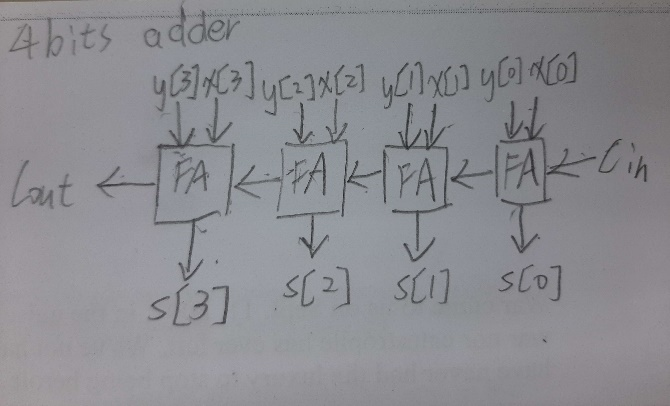 4 bits adder
y[3] x[3] y[2] x[2] y[1] x[1] y[0] x[0]
Cout FA FA FA FA Cin
s[3] s[2] s[1] s[0]